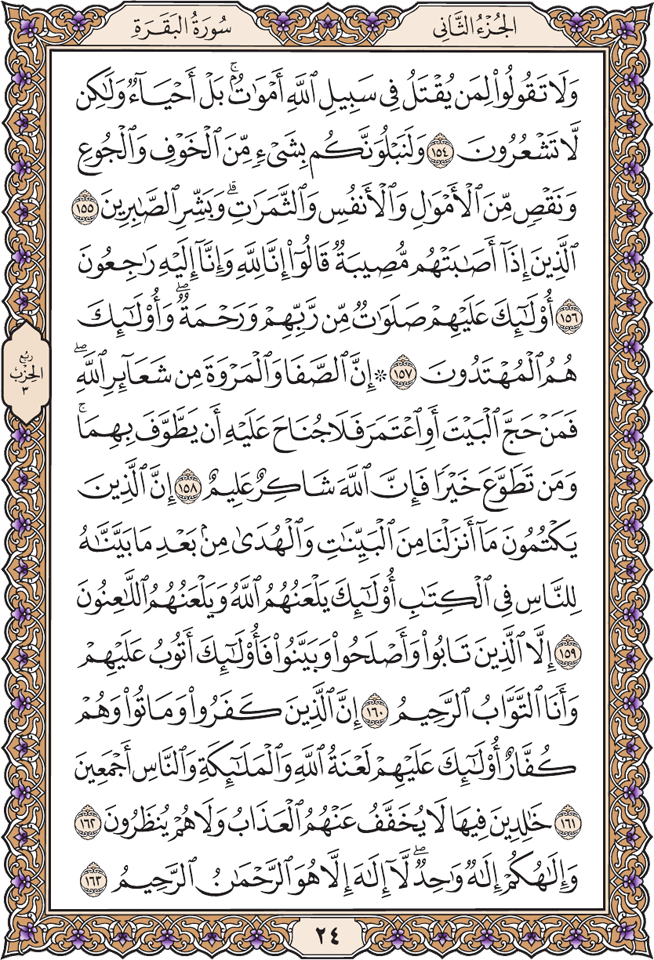 الجُزْءُ الثَّانِي
سُورَةُ البَقَرَةِ
وَلَا تَقُولُواْ لِمَن يُقْتَلُ فِي سَبِيلِ ٱللَّهِ أَمْوَٰتُۢ ۚ بَلْ أَحْيَآءٌ وَلَٰكِن
لَّا تَشْعُرُونَ ١٥٤ وَلَنَبْلُوَنَّكُم بِشَيْءٍ مِّنَ ٱلْخَوْفِ وَٱلْجُوعِ
وَنَقْصٍ مِّنَ ٱلْأَمْوَٰلِ وَٱلْأَنفُسِ وَٱلثَّمَرَٰتِ ۗ وَبَشِّرِ ٱلصَّٰبِرِينَ ١٥٥
ٱلَّذِينَ إِذَآ أَصَٰبَتْهُم مُّصِيبَةٌ قَالُوٓاْ إِنَّا لِلَّهِ وَإِنَّآ إِلَيْهِ رَٰجِعُونَ
١٥٦ أُوْلَٰٓئِكَ عَلَيْهِمْ صَلَوَٰتٌ مِّن رَّبِّهِمْ وَرَحْمَةٌ ۖ وَأُوْلَٰٓئِكَ
هُمُ ٱلْمُهْتَدُونَ ١٥٧ ۞ إِنَّ ٱلصَّفَا وَٱلْمَرْوَةَ مِن شَعَآئِرِ ٱللَّهِ ۖ
فَمَنْ حَجَّ ٱلْبَيْتَ أَوِ ٱعْتَمَرَ فَلَا جُنَاحَ عَلَيْهِ أَن يَطَّوَّفَ بِهِمَا ۚ
وَمَن تَطَوَّعَ خَيْرًا فَإِنَّ ٱللَّهَ شَاكِرٌ عَلِيمٌ ١٥٨ إِنَّ ٱلَّذِينَ
يَكْتُمُونَ مَآ أَنزَلْنَا مِنَ ٱلْبَيِّنَٰتِ وَٱلْهُدَىٰ مِنۢ بَعْدِ مَا بَيَّنَّٰهُ
لِلنَّاسِ فِي ٱلْكِتَٰبِ أُوْلَٰٓئِكَ يَلْعَنُهُمُ ٱللَّهُ وَيَلْعَنُهُمُ ٱللَّٰعِنُونَ
١٥٩ إِلَّا ٱلَّذِينَ تَابُواْ وَأَصْلَحُواْ وَبَيَّنُواْ فَأُوْلَٰٓئِكَ أَتُوبُ عَلَيْهِمْ
وَأَنَا ٱلتَّوَّابُ ٱلرَّحِيمُ ١٦٠ إِنَّ ٱلَّذِينَ كَفَرُواْ وَمَاتُواْ وَهُمْ
كُفَّارٌ أُوْلَٰٓئِكَ عَلَيْهِمْ لَعْنَةُ ٱللَّهِ وَٱلْمَلَٰٓئِكَةِ وَٱلنَّاسِ أَجْمَعِينَ
١٦١ خَٰلِدِينَ فِيهَا لَا يُخَفَّفُ عَنْهُمُ ٱلْعَذَابُ وَلَا هُمْ يُنظَرُونَ ١٦٢
وَإِلَٰهُكُمْ إِلَٰهٌ وَٰحِدٌ ۖ لَّآ إِلَٰهَ إِلَّا هُوَ ٱلرَّحْمَٰنُ ٱلرَّحِيمُ ١٦٣
ربع
الحزب
٣
٢٤